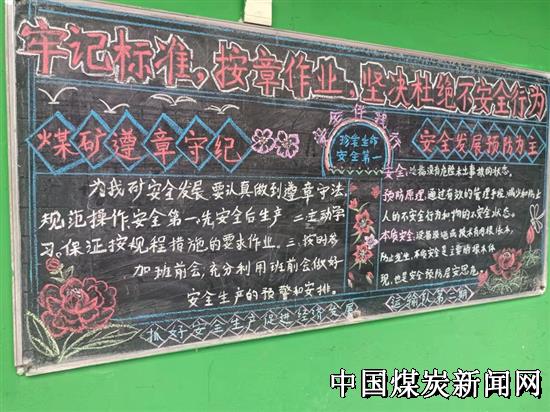 牢记标准,按章作业、坚决杜绝不安全行为
煤矿遵章守纪
为我矿安全发展,要认真做到遵章守法、
规范操作安全第一、先安全后生产 二.主动学
习、保证按规程措施的要求作业, 三、按时参
加班前会,充分利用班前会做好
安全生产的预警和安排。
珍爱生命
安全第一
安全发展预防为主
安全,是指没有危险未出事故的状态。
预防原理,通过有效的管理手段,减少和防止
人的不安全行为和物的不安全状态。
本质安全,
现,也是安全预防居安思危。
抓好安全生产促进经济发展
运输队第二期
中国煤炭新闻网